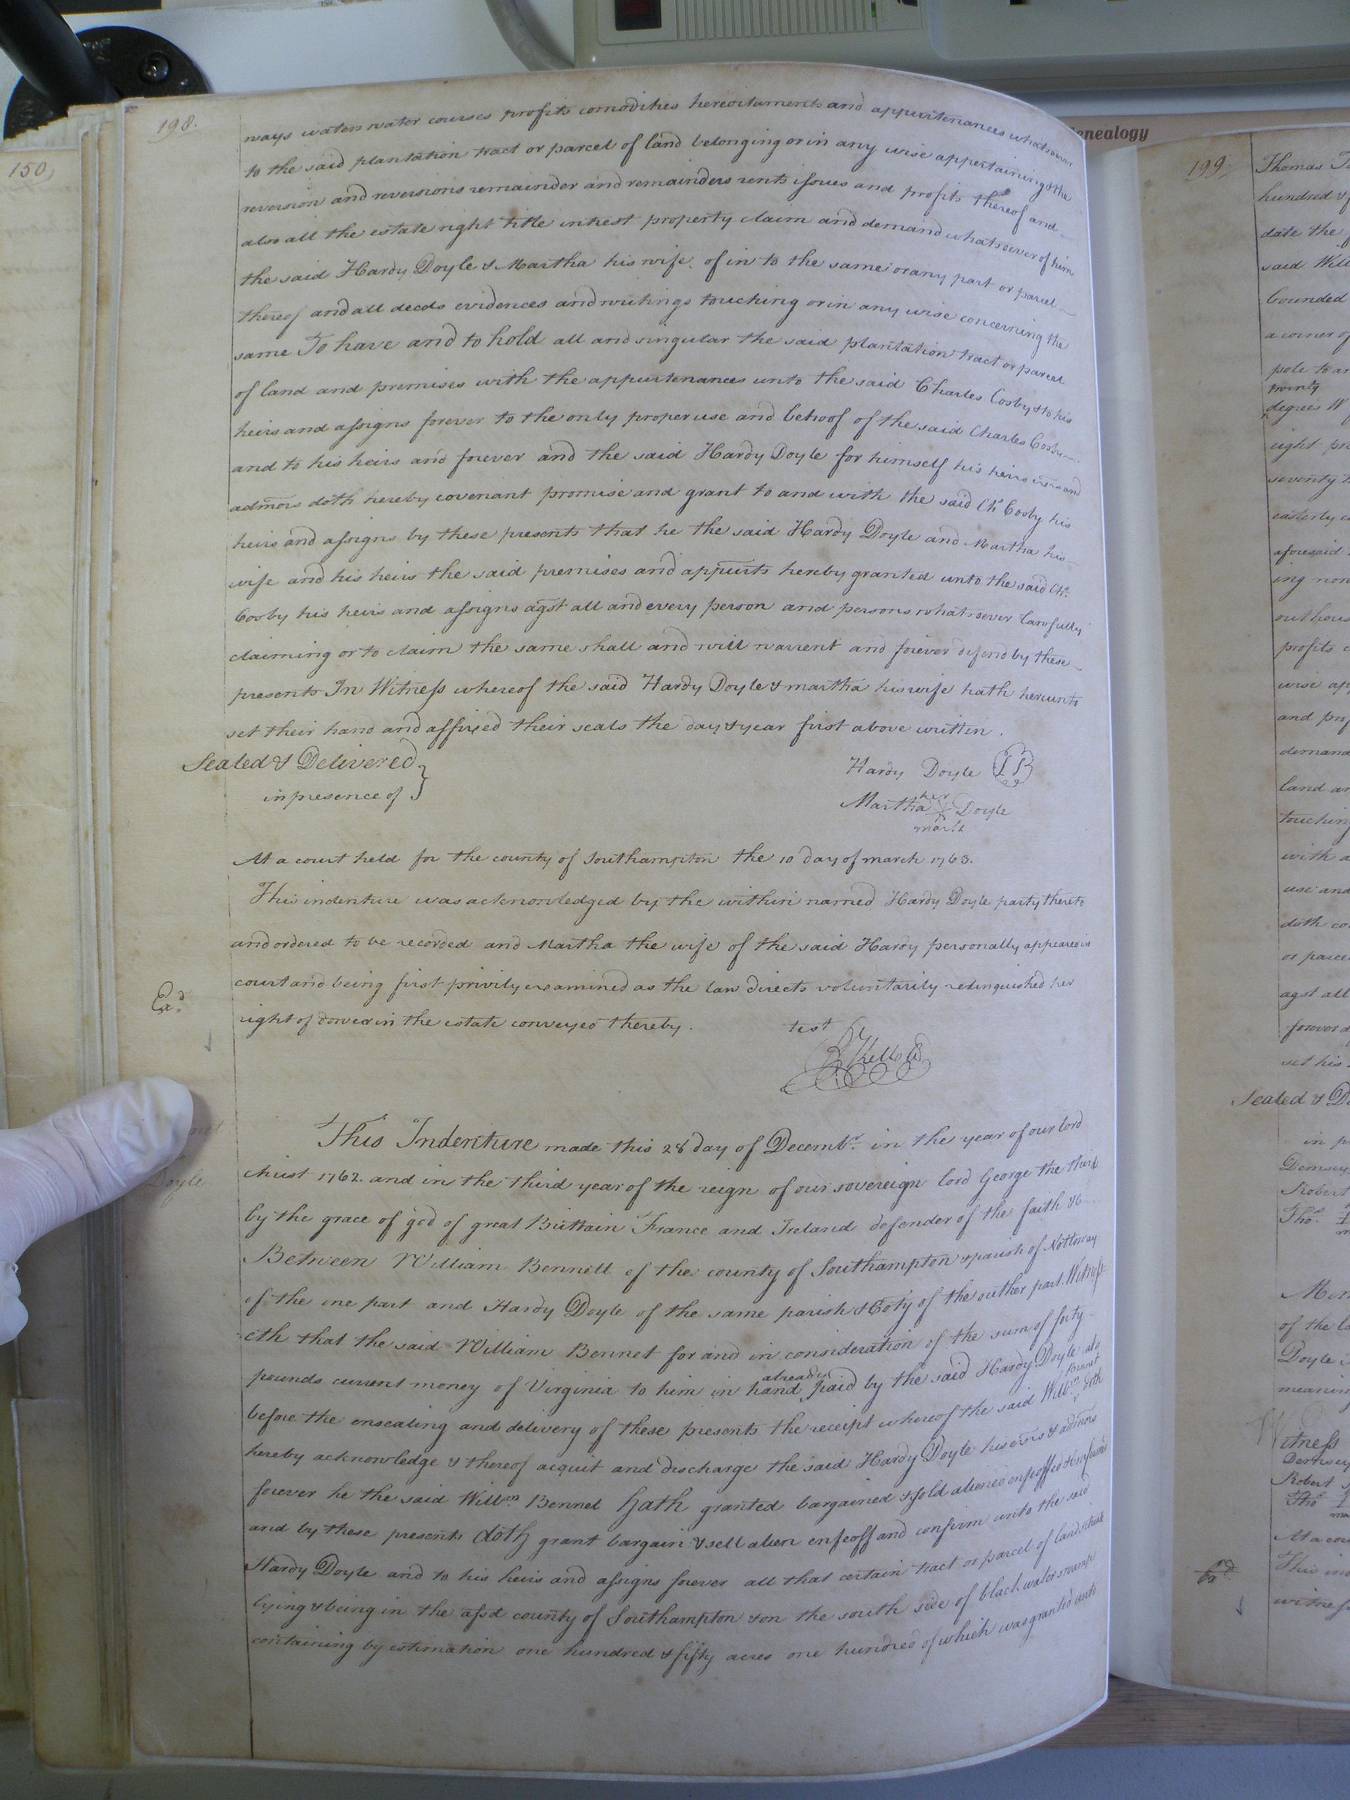 150
198.
ways waters water courses profits comodities hereditaments and appurtenances whatsoever
to the said plantation tract or parcel of land belonging or in any wise appertaining & the
reversion and reversions remainder and remainders rents issues and profits thereof and
also all the estate right title intrest property claim and demand whatsoever of him
the said Hardy Doyle & Martha his wife of in to the same or any part or parcel
thereof and all deeds evidences and writings touching or in any wise concerning the
same To have and to hold all and singular the said plantation tract or parcel
of land and premises with the appurtenances unto the said Charles Cosby & to his
heirs and assigns forever to the only proper use and behoof of the said Charles Cosby
and to his heirs and forever and the said Hardy Doyle for himself his heirs exrs and
admors doth hereby covenant promise and grant to and with the said Chs. Cosby his
heirs and assigns by these presents that he the said Hardy Doyle and Martha his
wife and his heirs the said premises and appurts hereby granted unto the said Chs.
Cosby his heirs and assigns agst all and every person and persons whatsoever lawfully
claiming or to claim the same shall and will warrent and forever defend by these
presents In Witness whereof the said Hardy Doyle & martha his wife hath hereunto
set their hand and affixed their seals the day & year first above written.
Sealed & Delivered }
in presence of
Hardy Doyle
Martha her X mark Doyle
At a court held for the county of Southampton the 10 day of march 1763.
This indenture was acknowledged by the within named Hardy Doyle party thereto
and ordered to be recorded and Martha the wife of the said Hardy personally appeared in
court and being first privily examined as the law directs voluntarily relinquished her
right of dower in the estate conveyed thereby.
test
Exd.
This Indenture made this 28 day of Decembr. in the year of our lord
christ 1762. and in the third year of the reign of our sovereign lord George the third
by the grace of god of great Brittain France and Ireland defender of the faith &c
Between William Bennett of the county of Southampton & parish of Nottoway
of the one part and Hardy Doyle of the same parish & Coty of the outher part Witness
eth that the said William Bennet for and in consideration of the sum of forty
pounds current money of Virginia to him in hand already paid by the said Hardy Doyle at or
before the ensealing and delivery of these presents the receipt whereof the said Willm Bennet doth
hereby acknowledge & thereof acquit and discharge the said Hardy Doyle his exrs & admors
forever he the said Willm. Bennet hath granted bargained & sold aliened enfeoffed & confirmed
and by these presents doth grant bargain & sell alien enfeoff and confirm unto the said
Hardy Doyle and to his heirs and assigns forever all that certain tract or parcel of land situate
lying & being in the afsd county of Southampton & on the south side of black water swamp
containing by estimation one hundred & fifty acres one hundred of which was granted unto
Doyle
enealogy
199.
Thomas
hundred &
date the
said Will
bounded
a corner of
pole to
twenty
degrees W
eight
seventy
easterly
aforesaid
ing
outhous
profits
wise ap
and
demand
land an
touching
with a
use and
doth co
or parce
agst all
forever d
set his
Sealed & D
in p
Robert
Tho.
of the
Doyle
meaning
Witness
Robert
Tho
At a cou
This in
witness